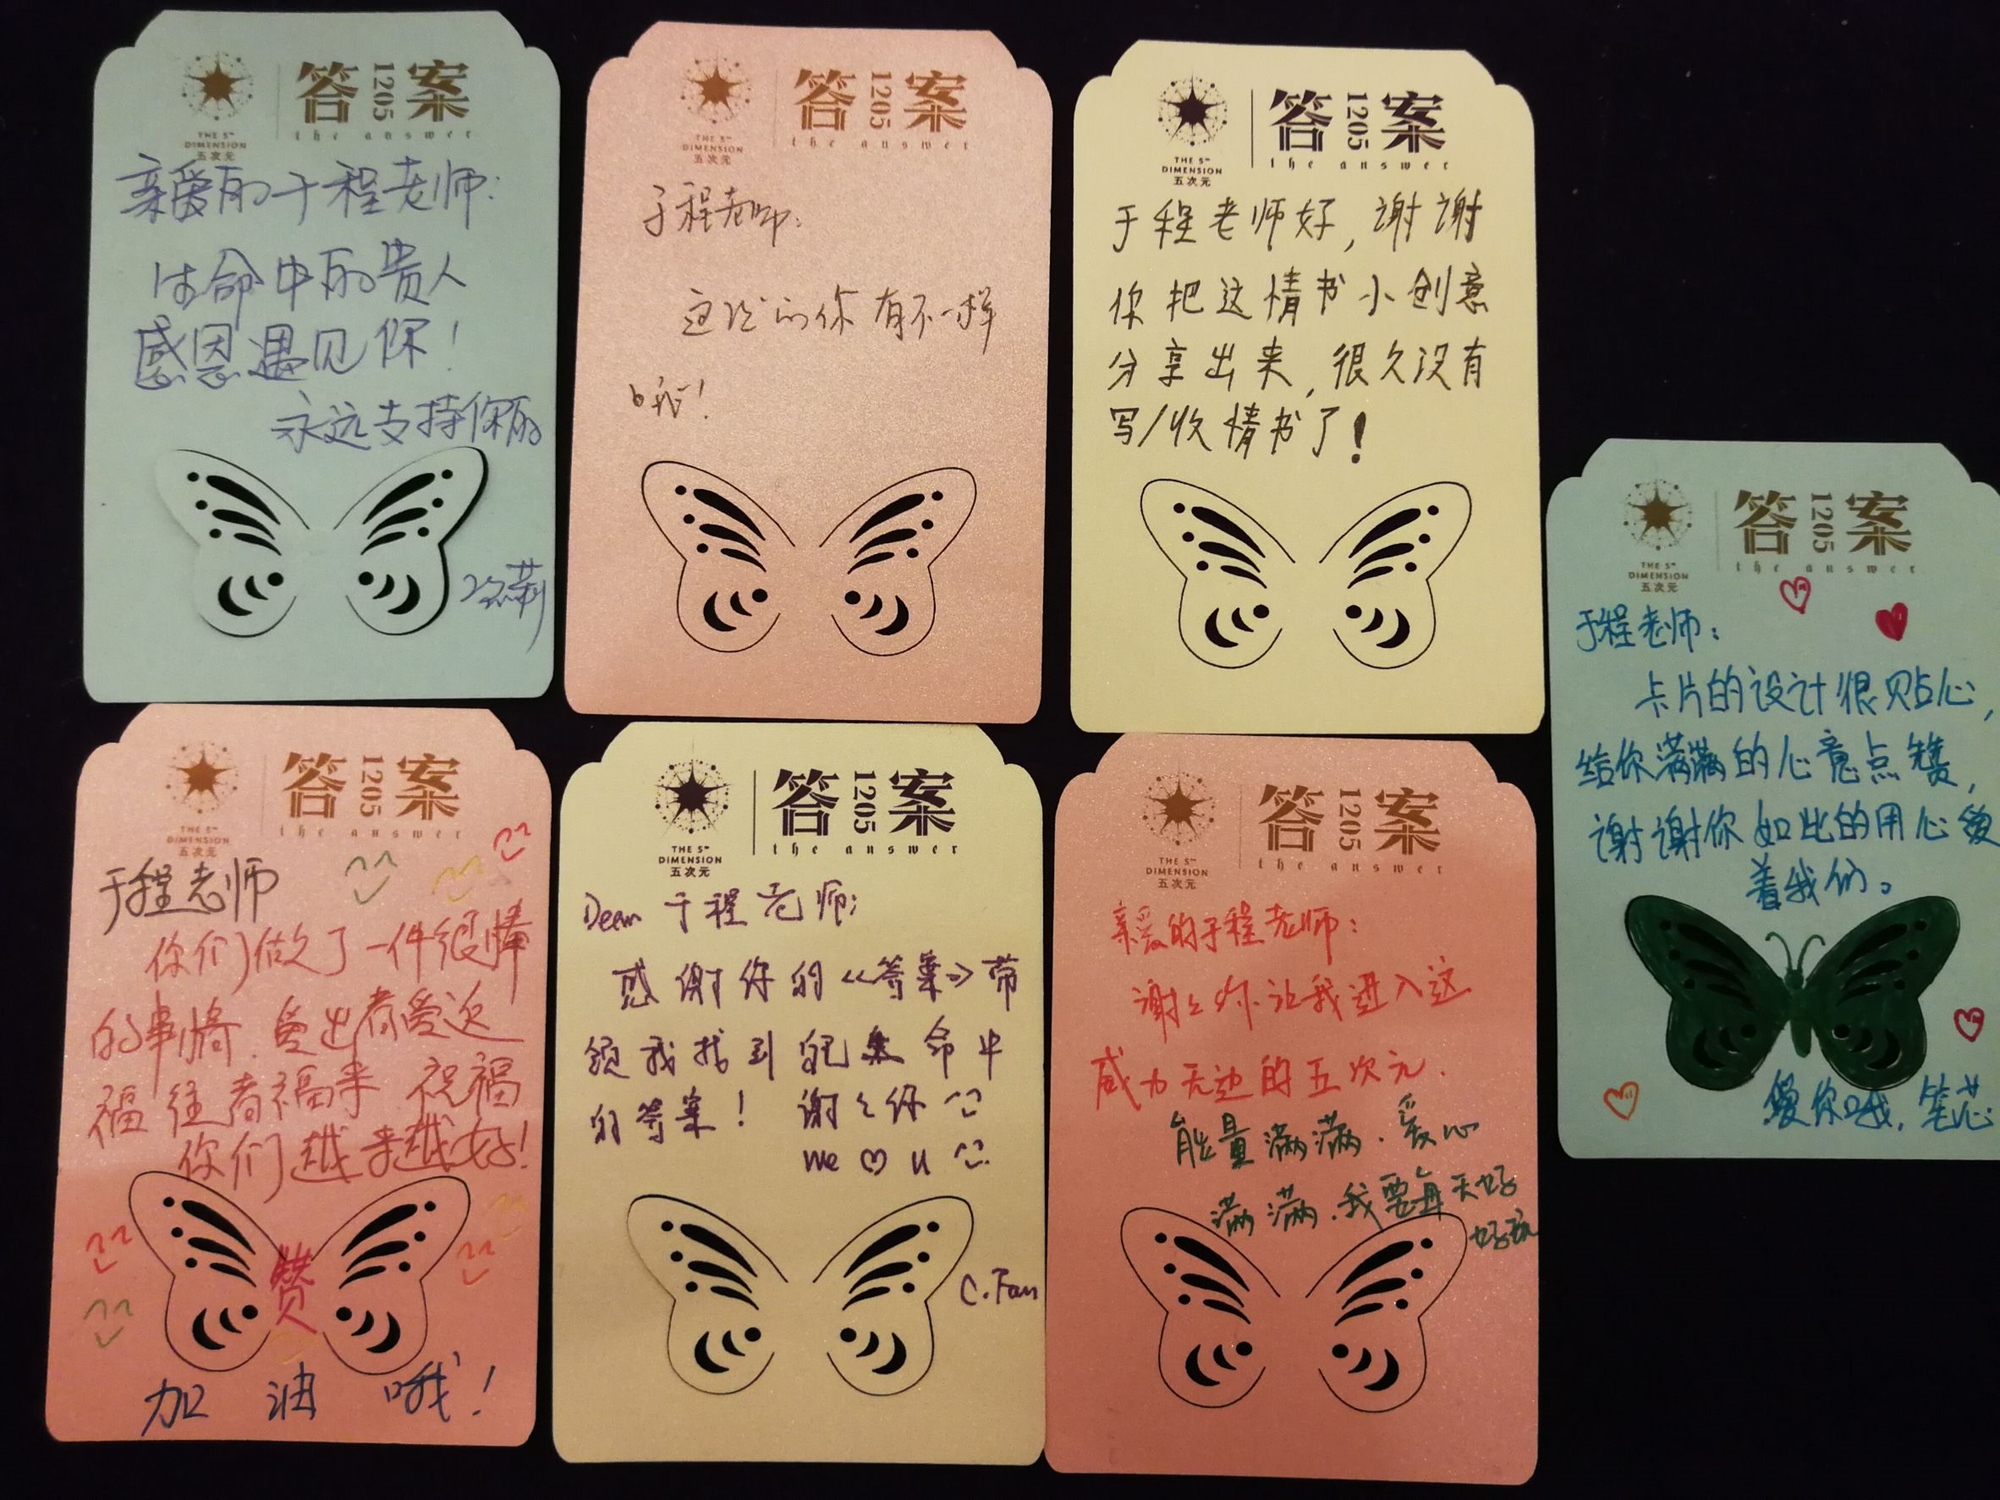 THE 5™
DIMENSION
五次元
答1205案
the answer
亲爱的于程老师:
生命中的贵人
感恩遇见你!
永远支持你的
THE 5™
DIMENSION
五次元
答1205案
the answer
于程老师:
这次的你有不一样
哦!
THE 5™
DIMENSION
五次元
答1205案
the answer
于程老师好,谢谢
你把这情书小创意
分享出来,很久没有
写/收情书了!
THE 5™
DIMENSION
五次元
答1205案
the answer
于程老师:
卡片的设计很贴心,
给你满满的心意点赞,
谢谢你如此的用心爱
着我们。
爱你哦,笔芯
THE 5™
DIMENSION
五次元
答1205案
the answer
于程老师
你们做了一件很棒
的事情.爱出者爱返
福往者福来.祝福
你们越来越好!
赞
加油哦!
THE 5™
DIMENSION
五次元
答1205案
the answer
Dear 于程老师:
感谢你的《答案》带
领我找到自己生命中
的答案! 谢々你
we ♡ u
C.Fan
THE 5™
DIMENSION
五次元
答1205案
the answer
亲爱的于程老师:
谢々你让我进入这
威力无边的五次元.
能量满满.爱心
满满.我要每天好
好玩